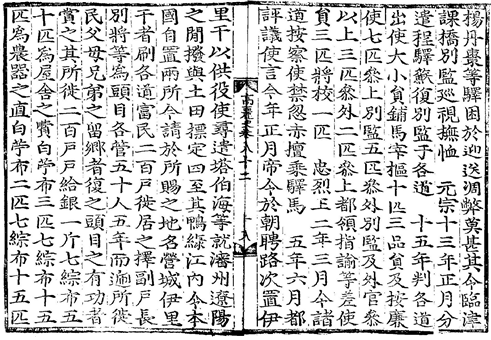 揚丹棗等驛困於迎送凋弊莫甚其令臨津
課橋別監巡視撫恤　元宗十三年正月分
遣程驛蘇復別監于各道　十五年判各道
出使大小員鋪馬宰樞十匹三品員及按廉
使七匹叅上別監五匹叅外別監及外官叅
以上三匹叅外二匹叅上都領指諭等差使
員三匹將校一匹　忠烈王二年三月令諸
道按察使禁忽赤擅乘驛馬　五年六月都
評議使言今年正月帝令於朝聘路次置伊
高麗史卷八十二　十八
里干以供役使尋遣塔伯海等就瀋州遼陽
之閒撥與土田標定四至其鴨綠江內令本
國自置兩所今請於所賜之地名營城伊里
干者刷各道富民二百戶徙居之擇副戶長
別將等為頭目各管五十人五年而遞所徙
民父母兄弟之留鄉者復之頭目之有功者
賞之其所徙二百戶戶給銀一斤七綜布五
十匹為屋舍之費白苧布三匹七綜布十五
匹為農器之直白苧布二匹七綜布十五匹